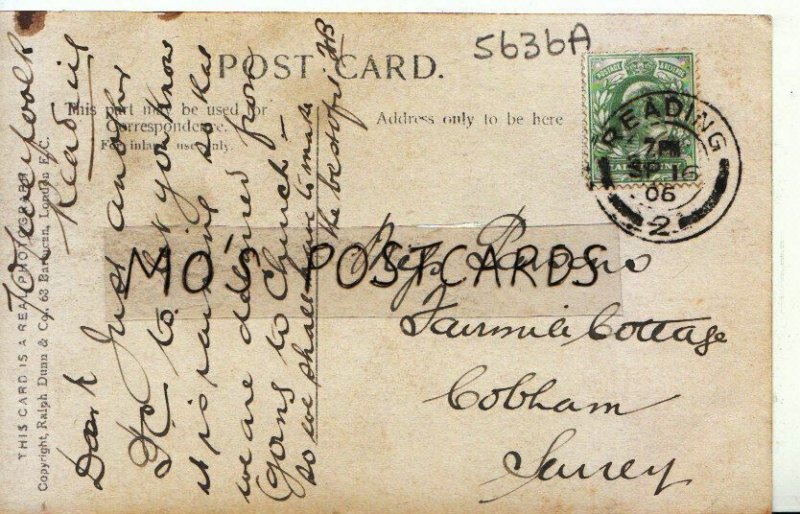 5636A
POST CARD.
This part may be used for
Correspondence.
For inland use only.
Address only to be here
READING
7PM
SP 16
06
2
MO'S POSTCARDS
Parsons
Fairmile Cottage
Cobham
Surrey
Reading
Dear
Just another
to let you know
it is raining so that
we are delayed from
going to Church -
so we shall have to make
the best of it
THIS CARD IS A REAL PHOTOGRAPH
Copyright, Ralph Dunn & Co., 63 Barbican, London E.C.